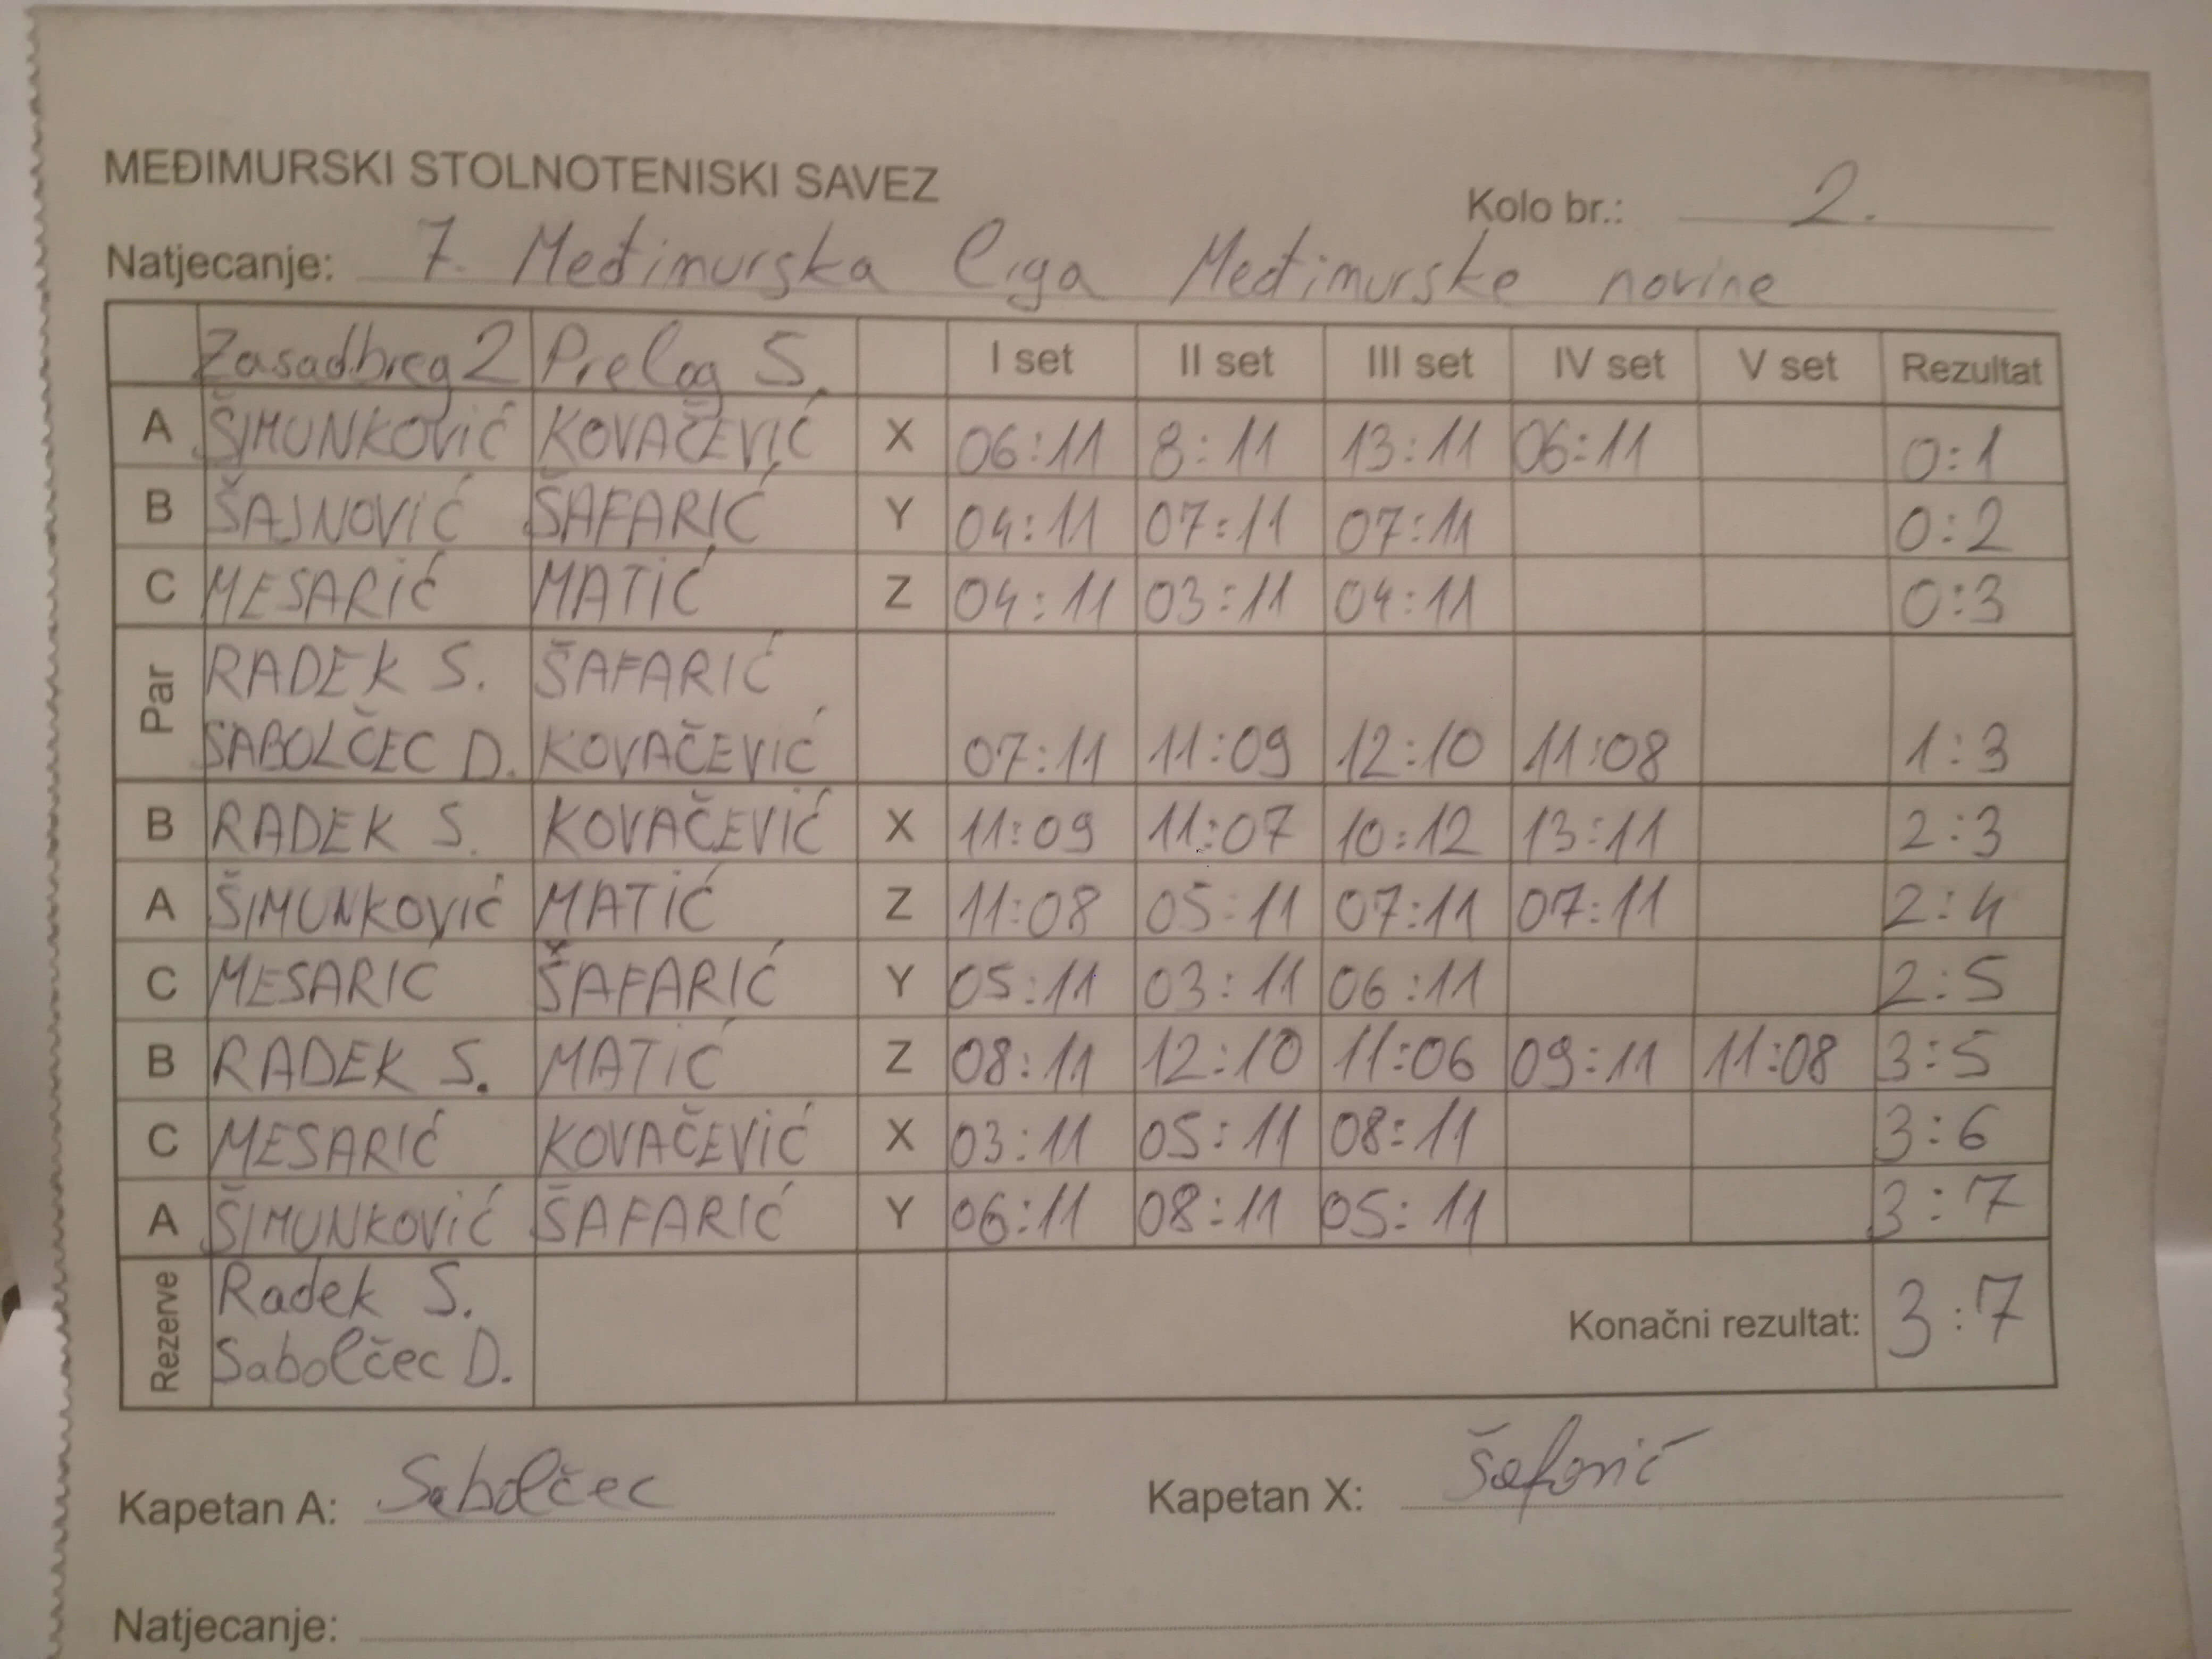 MEĐIMURSKI STOLNOTENISKI SAVEZ
Kolo br.: 2.
Natjecanje: 7. Međimurska liga Međimurske novine
Zasadbreg 2 Prelog 5. I set II set III set IV set V set Rezultat
A ŠIMUNKOVIĆ KOVAČEVIĆ X 06:11 8:11 13:11 06:11 0:1
B ŠAJNOVIĆ ŠAFARIĆ Y 04:11 07:11 07:11 0:2
C MESARIĆ MATIĆ Z 04:11 03:11 04:11 0:3
Par RADEK S. ŠAFARIĆ
SABOLČEC D. KOVAČEVIĆ 07:11 11:09 12:10 11:08 1:3
B RADEK S. KOVAČEVIĆ X 11:09 11:07 10:12 13:11 2:3
A ŠIMUNKOVIĆ MATIĆ Z 11:08 05:11 07:11 07:11 2:4
C MESARIĆ ŠAFARIĆ Y 05:11 03:11 06:11 2:5
B RADEK S. MATIĆ Z 08:11 12:10 11:06 09:11 11:08 3:5
C MESARIĆ KOVAČEVIĆ X 03:11 05:11 08:11 3:6
A ŠIMUNKOVIĆ ŠAFARIĆ Y 06:11 08:11 05:11 3:7
Rezerve Radek S.
Sabolčec D.
Konačni rezultat: 3:7
Kapetan A: Sabolčec Kapetan X: Šafarić
Natjecanje: